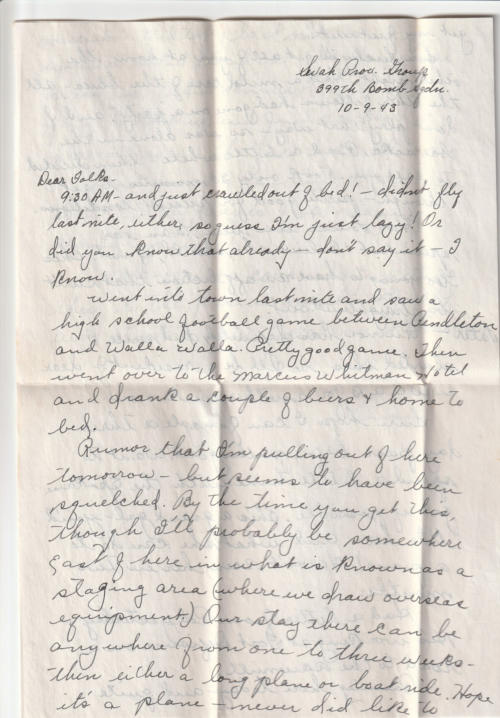 Prov. Group
399th Bomb Sqdn.
10-9-43
Dear Folks-
9:30 AM - and just crawled out of bed! - didn't fly
last nite, either, so guess I'm just lazy! Or
did you know that already - don't say it - I
know.
Went into town last nite and saw a
high school football game between Pendleton
and Walla Walla. Pretty good game. Then
went over to the Marcus Whitman Hotel
and drank a couple of beers & home to
bed.
Rumor that I'm pulling out of here
tomorrow - but seems to have been
squelched. By the time you get this,
though I'll probably be somewhere
East of here in what is known as a
staging area (where we draw overseas
equipment.) Our stay there can be
anywhere from one to three weeks -
then either a long plane or boat ride. Hope
it's a plane - never did like to